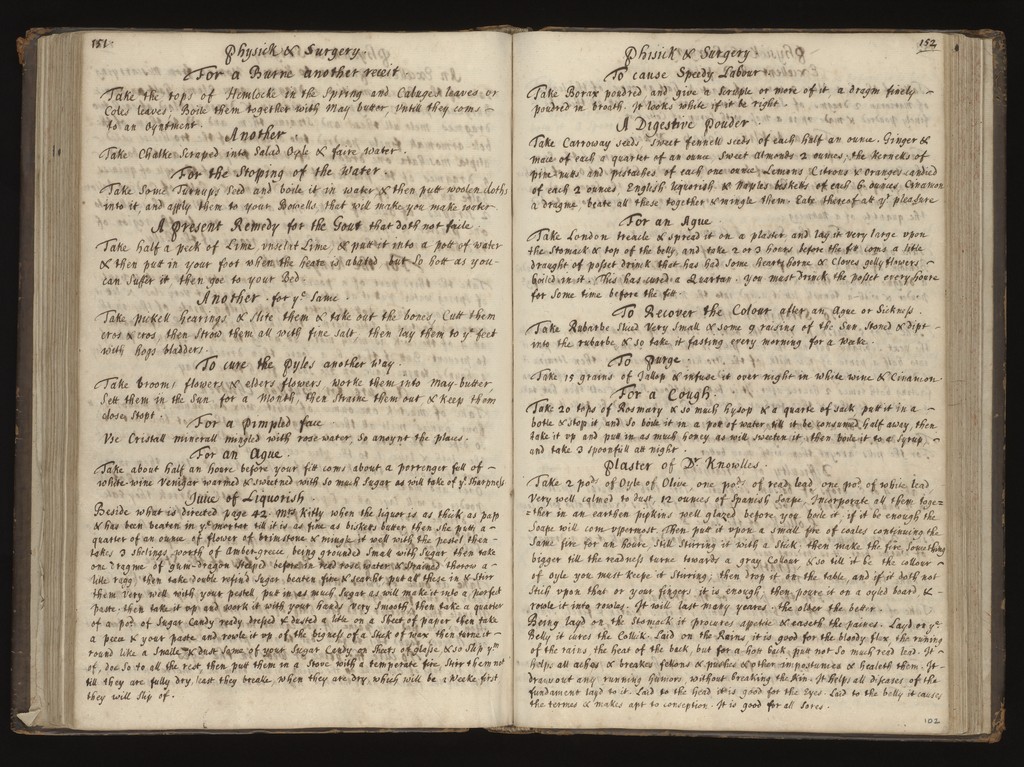 151.
Physick & Surgery.
For a Burne another receit
Take the tops of Hemlocke in the Spring and Cabage leaves or
Coles leaves. Boile them together with May butter, Untill they coms
to an Oyntment.
Another.
Take Chalke Scraped into Salad Oyle & faire water.
For the Stoping of the Water.
Take Some Turnups Seed and boile it in water & then putt woolen cloths
into it and apply them to your Bowells, that will make you make water.
A present Remedy for the Gout that doth not faile
Take half a peck of Lime unslat Lime & putt it into a pott of water
& then putt in your foot when the heate is abated but So hott as you
can Suffer it then goe to your Bed.
Another. for ye Same.
Take pickell hearings & Slite them & take out the bones, Cutt them
cros & cros, then Strow them all with fine Salt, then lay them to ye feet
with hogs bladders.
To cure the Pyles another way.
Take broome flowers & elders flowers worke them into May-butter
Sett them in the Sun for a Month, then Straine them out & keep them
close Stopt.
For a Pimpled face
Use Cristall minerall mingled with rose water, So anoynt the place.
For an Ague.
Take about half an houre before your fitt coms about a porrenger full of
white wine Venigar warmed & sweetned with So much Sugar as will take of ye Sharpness
Juice of Liquorish.
Beside what is directed page 42. Mrs Kitly when the liquor is as thick as pap
& has been beaten in ye morter till it is as fine as biskets butter, then she putts a
quarter of an ounce of flower of brimstone & mingle it well with the pestel then
takes 3 shelings worth of Amber-greece being grounded Small with Sugar then take
one dragme of gum-dragon Steeped before in read rose water & Strained thorow a
litle ragg, then take double refind Sugar beaten fine & searsht put all these in & Stirr
them Very well with your pestel, put in as much Sugar as will make it into a perfect
paste. then take it up and work it with your hands Very Smooth, then take a quarter
of a po: of Sugar Candy ready dresed & dusted a litle on a Sheet of paper then take
a peece of your paste and rowle it up of the bigness of a Stick of wax then turne it
round like a Snalle, & dust Some of your Sugar Candy on Sheets of glasse, & so Slip ym
of, doe So to all the rest, then putt them in a Stove with a temperate fire, Stirr them not
till they are fully dry, least they breake, when they are dry, which will be 1 Weeke first
they will Slip of.
152
Phisick & Surgery
To cause Speedy Labour
Take Borax poudred and give a scruple or more of it a dragm finely
poudred in broath. It looks white if it be right.
A Digestive Pouder.
Take Carroway seeds Sweet fennell seeds of each half an ounce. Ginger &
mace of each a quarter of an ounce Sweet almonds 2 ounces, the kernells of
pine-nutts and pistaches of each one ounce Lemons Citrons & oranges candied
of each 2 ounces English liquorish & Naples biskets of each 6 ounces, Cinamon
a dragme beate all these together & mingle them. Eate thereof att ye pleasure
For an Ague
Take London treacle & spread it on a plaster and lay it very large upon
the Stomack & top of the belly, and take 2 or 3 hours before the fitt coms a litle
draught of posset drink that has had Some heartshorne & Cloves gelly flowers
boiled in it. This has cured a Quartan. You must drink the posset every houre
for Some time before the fitt.
To Recover the Colour after an Ague or Sickness.
Take Rubarbe Sliced Very Small & some 9 raisins of the Sun Stoned & dipt
into the rubarbe & so take it fasting every morning for a Weeke.
To Purge.
Take 15 grains of Jallop & infuse it over night in white wine & Cinamon
For a Cough.
Take 20 tops of Rosmary & so much hysop & a quarte of sack, putt it in a
botle & stop it, and So boile it in a pott of water till it be consumed half away, then
take it up and put in as much honey as will sweeten it, then boile it to a Syrup,
and take 3 spoonfull att night.
Plaster of Dr Knowlles.
Take 2 pos: of Oyle of Olive, one po: of read lead, one po: of white lead
Very well calmed to dust, 12 ounces of Spanish Soape. Incorporate all them toge=
=ther in an earthen pipkins well glazed before you boile it; if it be enough the
Soape will com uppermost. Then putt it upon a small fire of coales continuing the
Same fire for an houre Still Stirring it with a Stick, then make the fire Something
bigger till the readness turne towards a gray Collour & so till it be the collour
of oyle you must keepe it Stirring; then drop it on the table, and if it doth not
Stick upon that or your fingers it is enough, then poure it on a oyled board &
rowle it into rowles. It will last many yeares. the older the better.
Being layd on the Stomack it procures apetite & easeth the paines. Layd on ye
Belly it cures the Collik. Laid on the Rains it is good for the bloody flux, the running
of the rains, the heat of the back, but for a hott back, putt not So much read lead. It
helps all aches & breakes felons & pushes & other impostumes & healeth them. It
draws out any running humors without breaking the skin. It helps all diseases of the
fundament layd to it. Laid to the head it is good for the Eyes. Laid to the belly it causes
the termes & makes apt to conseption. It is good for all Sores.
102